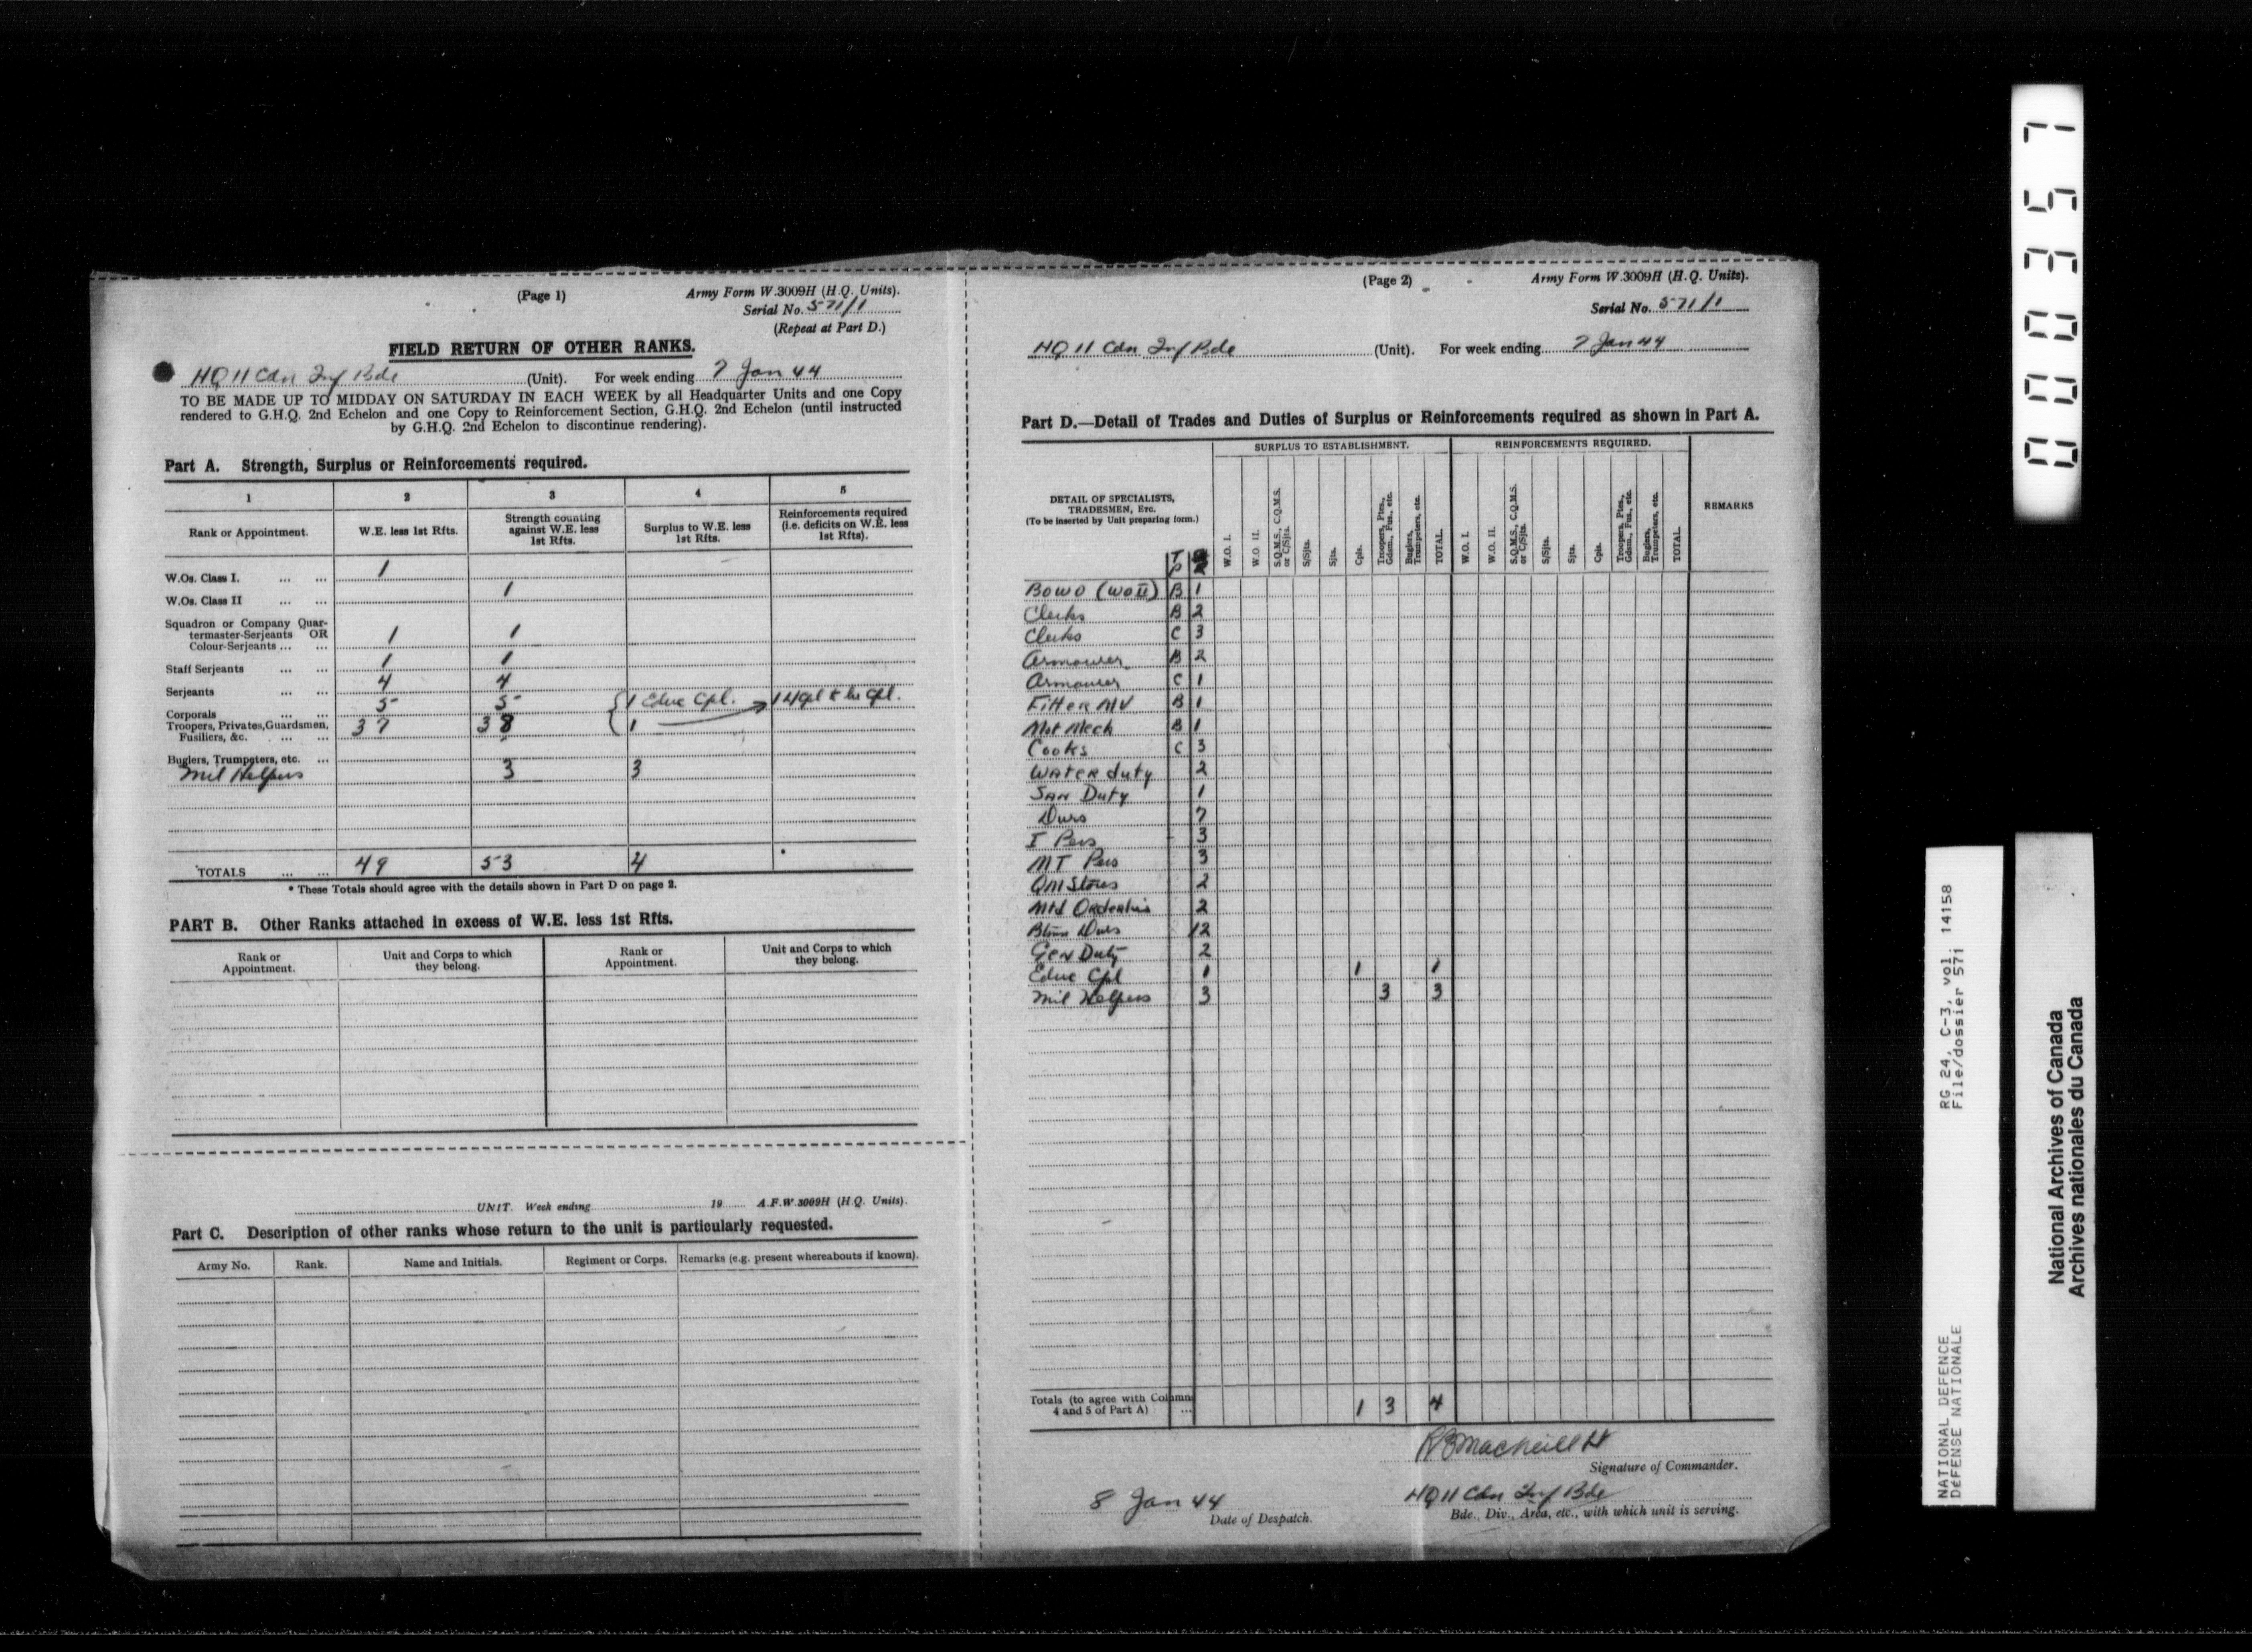 (Page 1)
Army Form W.3009H (H.Q. Units).
Serial No. 571/1
(Repeat at Part D.)
FIELD RETURN OF OTHER RANKS.
HQ 11 Cdn Inf Bde (Unit). For week ending 7 Jan 44
TO BE MADE UP TO MIDDAY ON SATURDAY IN EACH WEEK by all Headquarter Units and one Copy
rendered to G.H.Q. 2nd Echelon and one Copy to Reinforcement Section, G.H.Q. 2nd Echelon (until instructed
by G.H.Q. 2nd Echelon to discontinue rendering).
Part A. Strength, Surplus or Reinforcements required.
1 2 3 4 5
Rank or Appointment. W.E. less 1st Rfts. Strength counting against W.E. less 1st Rfts. Surplus to W.E. less 1st Rfts. Reinforcements required (i.e. deficits on W.E. less 1st Rfts).
W.Os. Class I. ... ... 1
W.Os. Class II ... ... 1
Squadron or Company Quar-
termaster-Serjeants OR
Colour-Serjeants ... ... 1 1
Staff Serjeants ... ... 1 1
Serjeants ... ... 4 4
Corporals ... ... 5 5 1 Educ Cpl.
Troopers, Privates, Guardsmen,
Fusiliers, &c. ... ... 37 38 1
Buglers, Trumpeters, etc. ...
Mil Helpers 3 3
TOTALS ... ... 49 53 4
* These Totals should agree with the details shown in Part D on page 2.
PART B. Other Ranks attached in excess of W.E. less 1st Rfts.
Rank or Appointment. Unit and Corps to which they belong. Rank or Appointment. Unit and Corps to which they belong.
UNIT. Week ending 19 A.F.W. 3009H (H.Q. Units).
Part C. Description of other ranks whose return to the unit is particularly requested.
Army No. Rank. Name and Initials. Regiment or Corps. Remarks (e.g. present whereabouts if known).
(Page 2)
Army Form W.3009H (H.Q. Units).
Serial No. 571/1
HQ 11 Cdn Inf Bde (Unit). For week ending 7 Jan 44
Part D.—Detail of Trades and Duties of Surplus or Reinforcements required as shown in Part A.
DETAIL OF SPECIALISTS,
TRADESMEN, ETC.
(To be inserted by Unit preparing form.)
SURPLUS TO ESTABLISHMENT. REINFORCEMENTS REQUIRED. REMARKS
W.O. I. W.O. II. S.Q.M.S., C.Q.M.S. or C/Sjts. S/Sjts. Sjts. Cpls. Troopers, Ptes., Gdsm., Fus., etc. Buglers, Trumpeters, etc. TOTAL.
W.O. I. W.O. II. S.Q.M.S., C.Q.M.S. or C/Sjts. S/Sjts. Sjts. Cpls. Troopers, Ptes., Gdsm., Fus., etc. Buglers, Trumpeters, etc. TOTAL.
BOWO (WO II) B 1
Clerks B 2
Clerks C 3
Armourer B 2
Armourer C 1
Fitter MV B 1
Mot Mech B 1
Cooks C 3
Water duty 2
San Duty 1
Dvrs 7
I Pers 3
MT Pers 3
QM Stores 2
Mtd Orderlies 2
Btmn Dvrs 12
Gen Duty 2
Educ Cpl 1 1 1
Mil Helpers 3 3 3
Totals (to agree with Columns
4 and 5 of Part A) ... 1 3 4
RB MacNeill Lt
Signature of Commander.
8 Jan 44
Date of Despatch.
HQ 11 Cdn Inf Bde
Bde., Div., Area, etc., with which unit is serving.
000357
NATIONAL DEFENCE RG 24, C-3, vol. 14158
DÉFENSE NATIONALE File/dossier 571
National Archives of Canada
Archives nationales du Canada